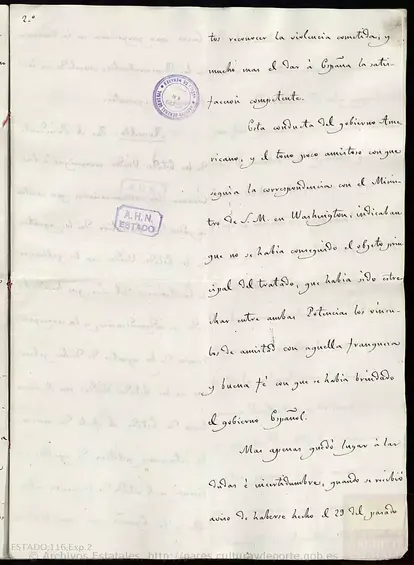 2.º
tos reconocer la violencia cometida, y
mucho mas el dar à España la satis-
faccion competente.
Esta conducta del gobierno Ame-
ricano, y el tono poco amistoso con que
seguia la correspondencia con el Minis-
tro de S.M. en Washington, indicaban
que no se habia conseguido el objeto prin-
cipal del tratado, que habia sido estre-
char entre ambas Potencias los víncu-
los de amistad con aquella franqueza
y buena fé con que se habia brindado
el gobierno Español.
Mas apenas quedó lugar à las
dudas é incertidumbre, quando se recibió
aviso de haberse hecho el 29 del pasado
A.H.N.
ESTADO
ESTADO,116,Exp.2
© Archivos Estatales, http://pares.culturaydeporte.gob.es